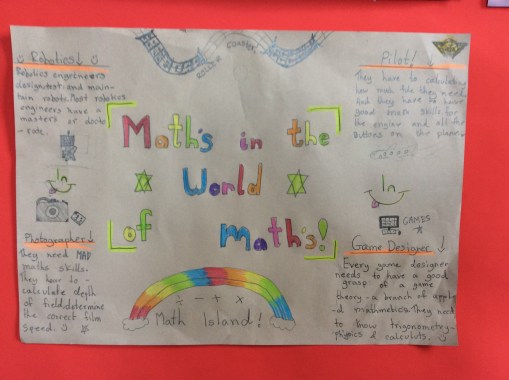 Robotics
Robotics engelneers
design,test and main-
tain robots.Most robotics
engineers have a
masters or docto
-rate.
coaster
Pilot!
They have to calculating
how much fule they need
And they have to have
good math skills for
the engine and all the
buttons on the plane
Math's in the
World
of math's!
Photographer
they need MAD
maths skills.
They have to
calculate depth
of field,determine
the correct film
speed.
GAMES
Game Designer
Every game designer
needs to have a good
grasp of a game
theory - a branch of apply
-d mathematics.They need
to know trigonometry-
physics & calculuts.
÷ - + ×
Math Island!